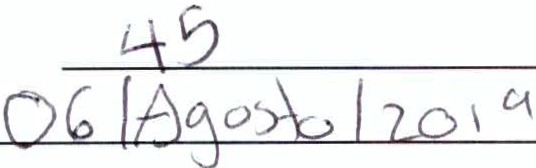 45
06/Agosto/2019